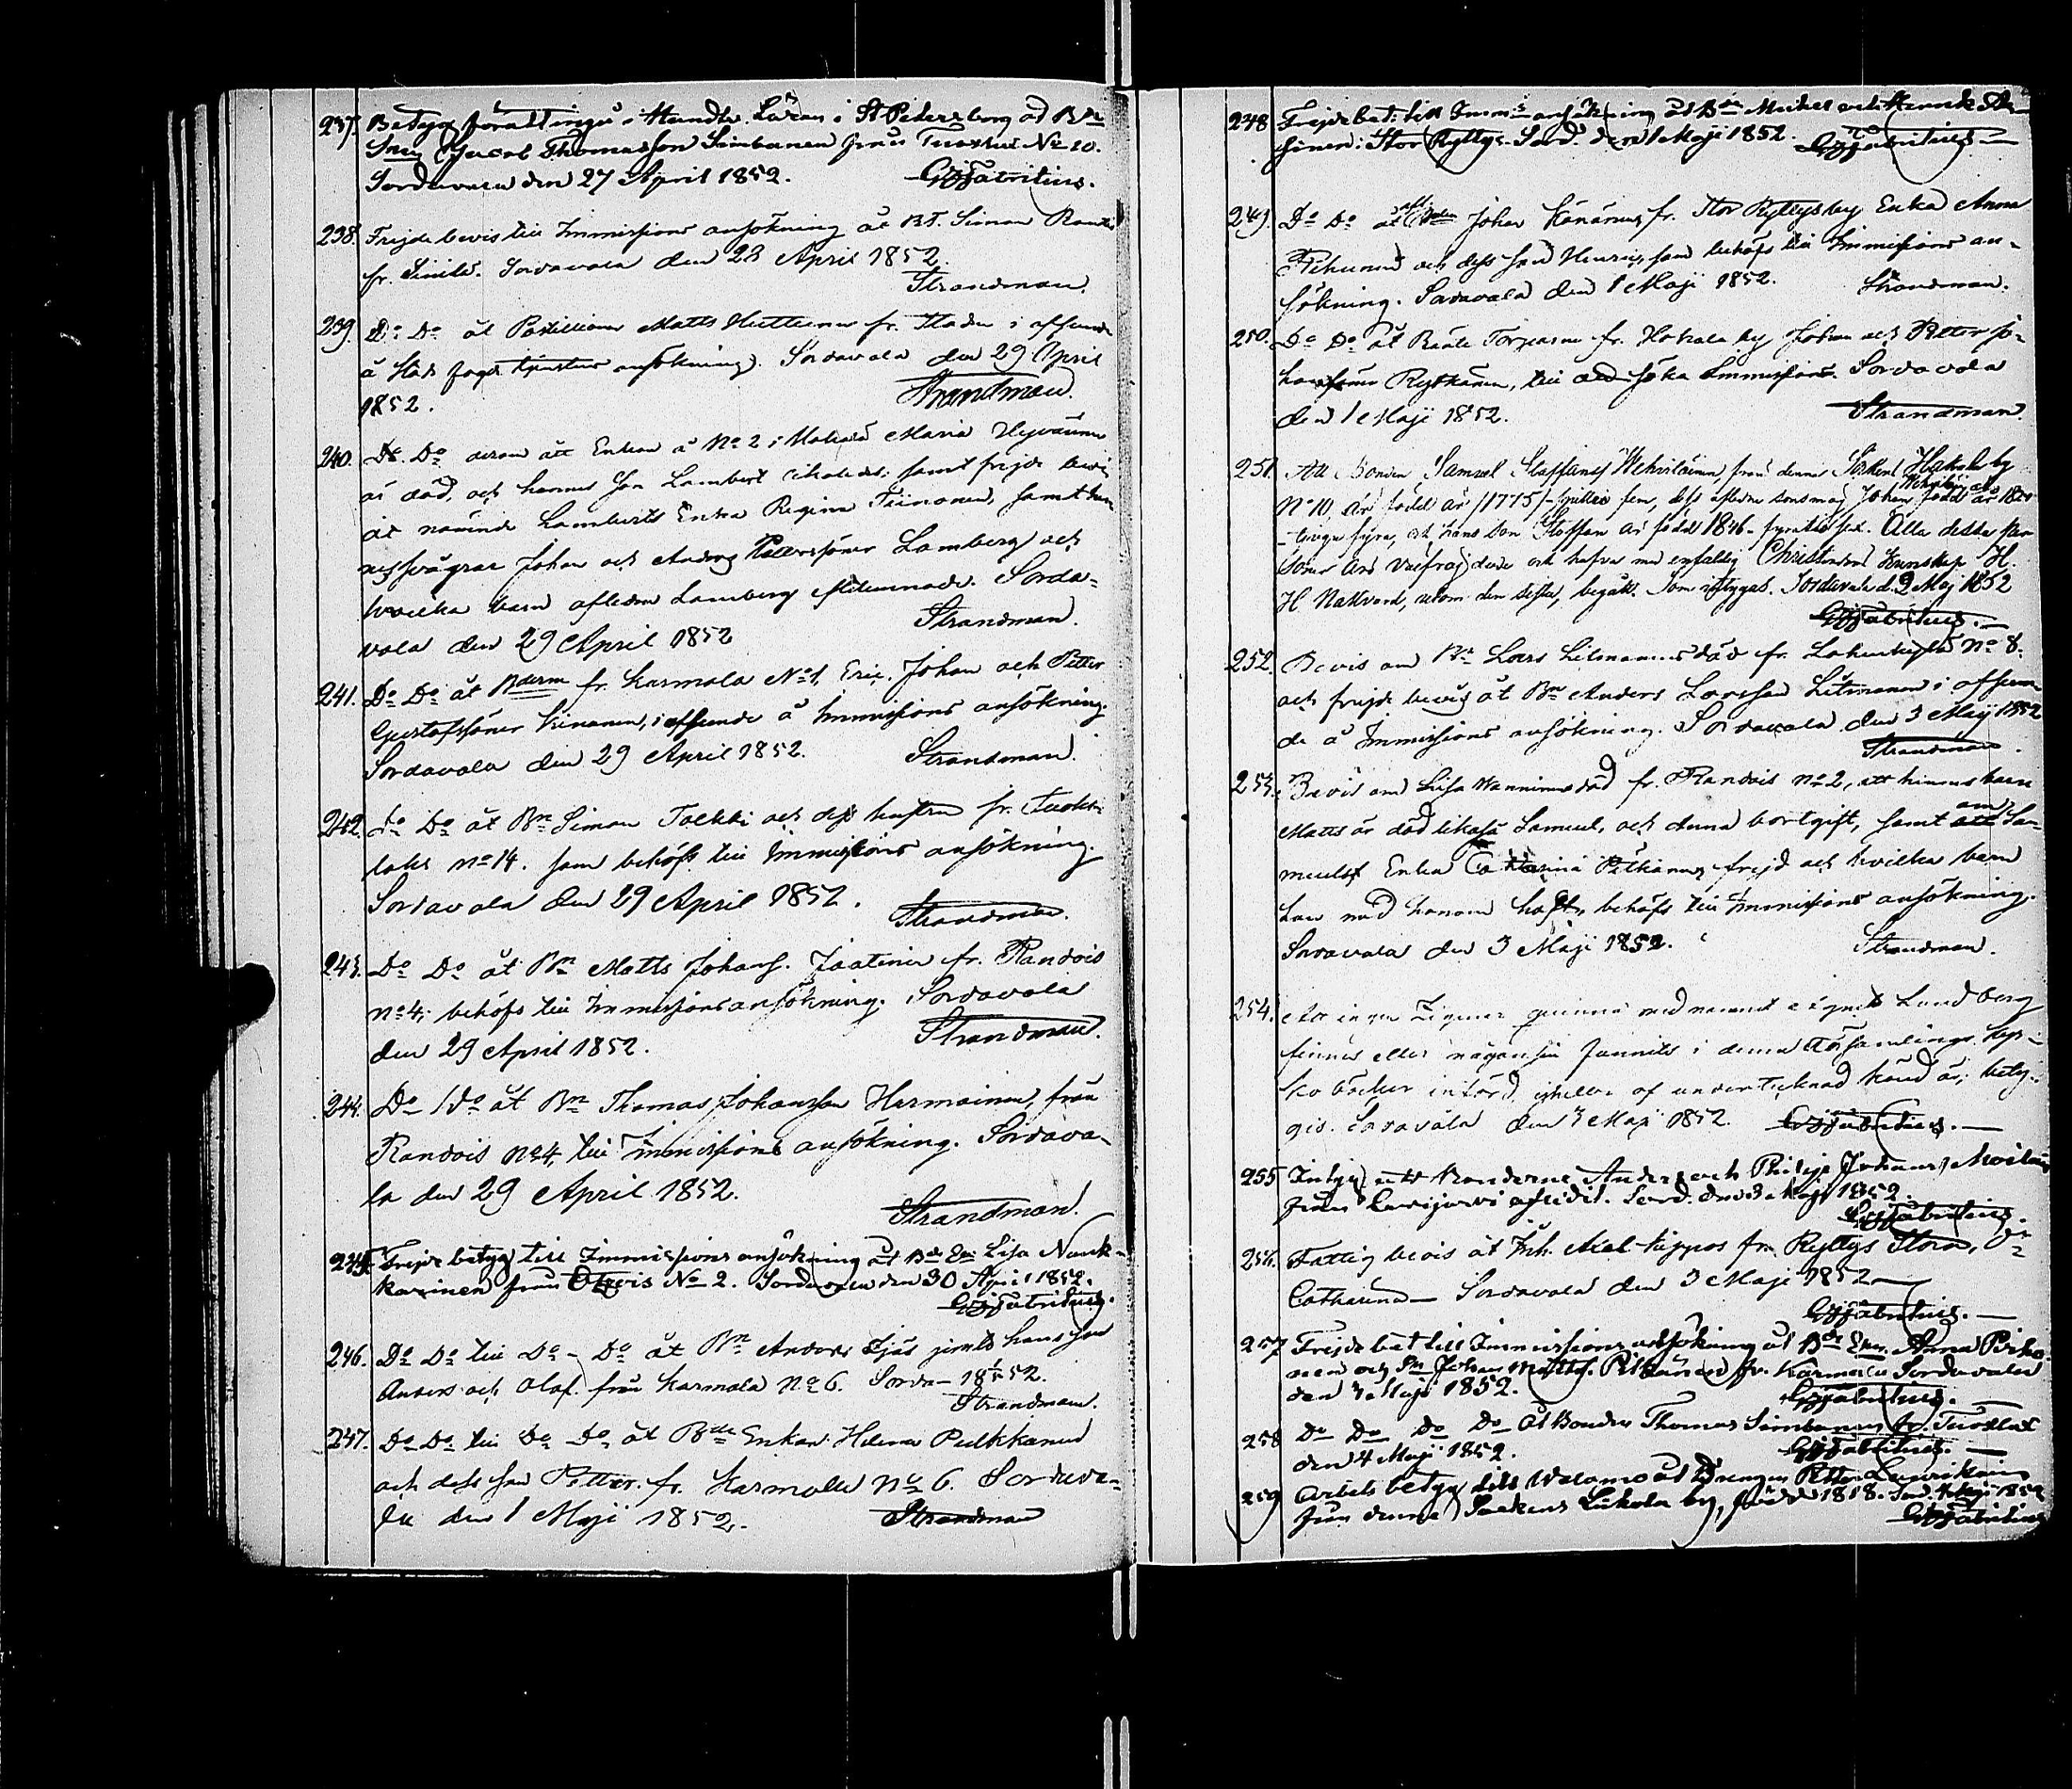 237. Betyg för att ingå i Handl. Läran i St Petersborg åt Bde
Son Jacob Thomasson Simbanen från Tuoxlax No 20.
Sordavala den 27 April 1852. GFabritius.
238. Frejdebevis till Immissions ansökning åt Bd. Simon
fr. Sordavala den 28 April 1852.
Strandman.
239. Do Do åt Postillion Matts Huttunen fr. Staden i afseende
å Stads ansökning. Sordavala den 29 April
1852. Strandman.
240. Do. Do derom att Enkan å No 2 i Maria Hyvärinen
är död, och hennes son Lambert likaledes; samt frejde bevis
åt nämnde Lamberts Enka Regina Tiinonen, samt
svågrar Johan och Anders Petterssöner Lamberg och
hvilka barn aflidne Lamberg efterlemnade. Sorda-
vala den 29 April 1852 Strandman.
241. Do Do åt Bderne fr. Karmala No 1, Eric, Johan och Petter
Gustafssöner Kinanen, i afseende å Immissions ansökning.
Sordavala den 29 April 1852. Strandman.
242. Do Do åt Bn Simon Tolkki och dess hustru fr. Tuoks-
laks no 14. som behöfs till Immissions ansökning.
Sordavala den 29 April 1852. Strandman.
243. Do Do åt Bn Matts Johans. Jaatinen fr. Randois
no 4, behöfs till Immissions ansökning. Sordavala
den 29 April 1852. Strandman.
244. Do Do åt Bn Thomas Johansson Harmainen, från
Randois no 4, till Immissions ansökning. Sordava-
la den 29 April 1852.
Strandman.
245. Frejde betyg till Immissions ansökning åt Bde En Lisa Nauk-
karinen från Otsois No 2. Sordavala den 30 April 1852.
GFabritius.
246. Do Do till Do - Do åt Bn Anders jemte hans son
Anders och Olof från Karmala no 6. Sorda- 18 1/5 52.
Strandman.
247. Do Do till Do Do åt Bde Enkan Helena Pulkkanen
och dess son Petter fr. Karmala no 6. Sordava-
la den 1 Maji 1852. Strandman
248 Frejdebet. till Immis ansökning åt Bde Michel och Henrik
söner i Stor Ryttys. Sord. den 1 Maji 1852. GFabritius
249. Do Do åt afl. Bonden Johan fr. Stor Ryttys by Enka Anna
Pihunen och dess son Henric, som behöfs till Immissions an-
sökning. Sordavala den 1 Maji 1852. Strandman.
250. Do Do åt fr. Hotkala by Johan och Petter Jo-
hanssöner Rytkänen, till att söka Immission. Sordavala
den 1 Maji 1852. Strandman.
251. Att Bonden Samuel Staffanss. Wehviläinen, från denne Socken, Hakala by
No 10, är född år /1775/ sjuttio fem, dess aflidne sons måg Johan Wehviläinen född år 1824
- tjugu fyra, och hans Son Staffan är född 1846 - fyratio sex. Alla desse per-
soner äro väfrejdade och hafva med enfaldig Christendoms Kunskap H.
H Nattvard, utom den sista, begått. Som intygas. Sordavala d. 2 Maj 1852
GFabritius.
252. Bevis om Bn Lars Litmanens död fr. Lahenkylä no 8.
och frejde bevis åt Bn Anders Larsson Litmanen i afseen-
de å Immissions ansökning. Sordavala den 3 Maji 1852
Strandman.
253. Bevis om Lisa Wanninens död fr. Randois no 2, att hennes barn
Matts är död likaså Samuel, och Anna bortgift, samt om Sa-
muels Enka Catharina Pitkänens frejd och hvilka barn
hon med honom haft, behöfs till Immissions ansökning.
Sordavala den 3 Maji 1852. Strandman.
254. Att ingen Zigenar qvinna med namnet Agneta Lundberg
finnes eller någonsin funnits i denna Församlings kyr-
koböcker införd, ej heller af undertecknad känd är, bety-
gas. Sordavala den 3 Maji 1852. GFabritius.
255 Intyg att Bönderne Anders och Philip Johanss.
från Lavijärvi aflidit. Sord. den 3 Maji 1852.
GFabritius.
256. Fattig bevis åt Inh. Axel fr. Ryttys Stora,
Catharina - Sordavala den 3 Maji 1852
GFabritius.
257 Frejdebet till Immissions ansökning åt Bde Enk. Anna Pirho-
nen och Bn Johan Mattss. Pitkänen fr. Karmala Sordavala
den 3 Maji 1852. GFabritius.
258 Do Do Do Do åt Bonden Thomas Simbanen fr. Tuoxlax
den 4 Maji 1852. GFabritius.
259 Arbets betyg till Walamo åt Drengen Petter
från denne Sockens Liikola by, född 1818. Sord. 4 Maji 1852
GFabritius